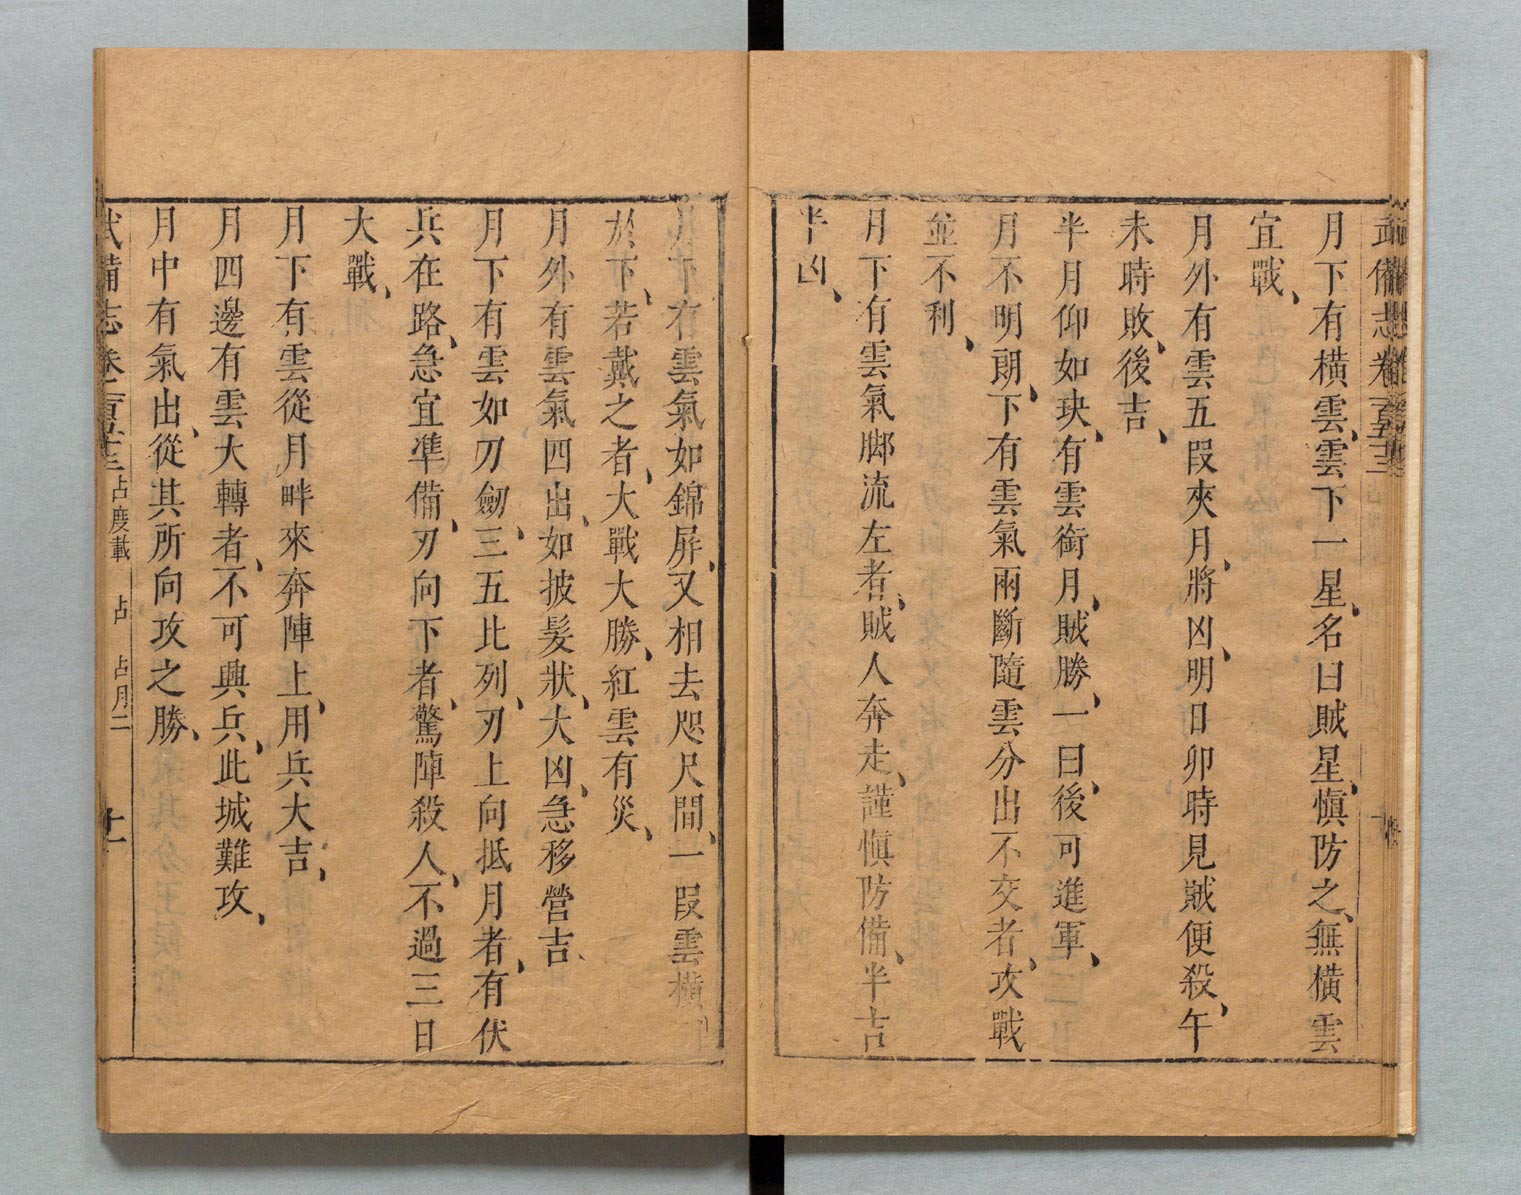 武備志卷
月下有橫雲雲下一星名曰賊星愼防之無橫雲
宜戰
月外有雲五段夾月將凶明日卯時見賊便殺午
未時敗後吉
半月仰如玦有雲銜月賊勝一曰後可進軍
月不明朗下有雲氣兩斷隨雲分出不交者攻戰
並不利
月下有雲氣脚流左者賊人奔走謹愼防備半吉
半凶
月下有雲氣如錦屛又相去咫尺間一段雲橫
於下若戴之者大戰大勝紅雲有災
月外有雲氣四出如披髮狀大凶急移營吉
月下有雲如刀劒三五比列刃上向抵月者有伏
兵在路急宜準備刃向下者驚陣殺人不過三日
大戰
月下有雲從月畔來奔陣上用兵大吉
月四邊有雲大轉者不可興兵此城難攻
月中有氣出從其所向攻之勝
武備志 卷一百五十三 占度載 占 占月二 十一